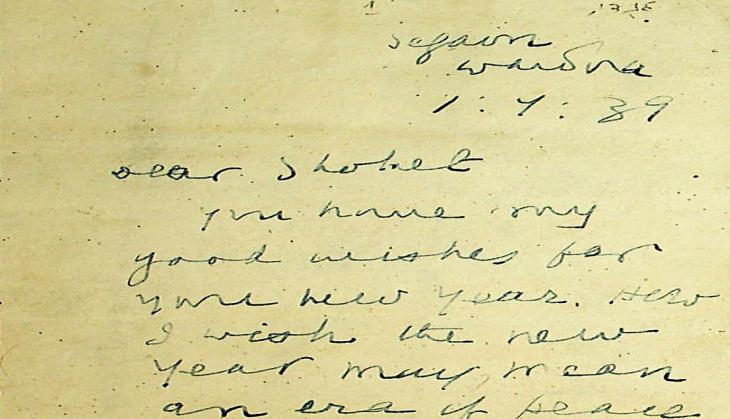 Segaon
Wardha
1 : 9 : 39
Dear Shohet
You have my
good wishes for
your new year. How
I wish the new
year may mean
an era of peace